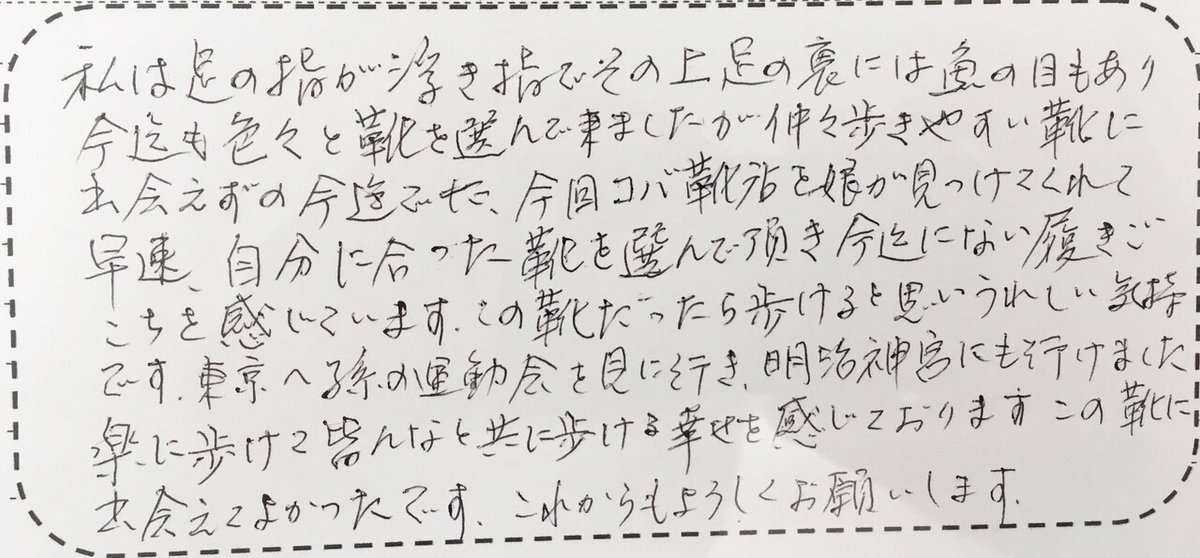 私は足の指が浮き指でその上足の裏には魚の目もあり
今迄も色々と靴を選んで来ましたが仲々歩きやすい靴に
出会えずの今迄でした、今回コバ靴店を娘が見つけてくれて
早速、自分に合った靴を選んで頂き今迄にない履きご
こちを感じています。この靴だったら歩けると思いうれしい気持
です。東京へ孫の運動会を見に行き、明治神宮にも行けました
楽に歩けて皆んなと共に歩ける幸せを感じております この靴に
出会えてよかったです。これからもよろしくお願いします。